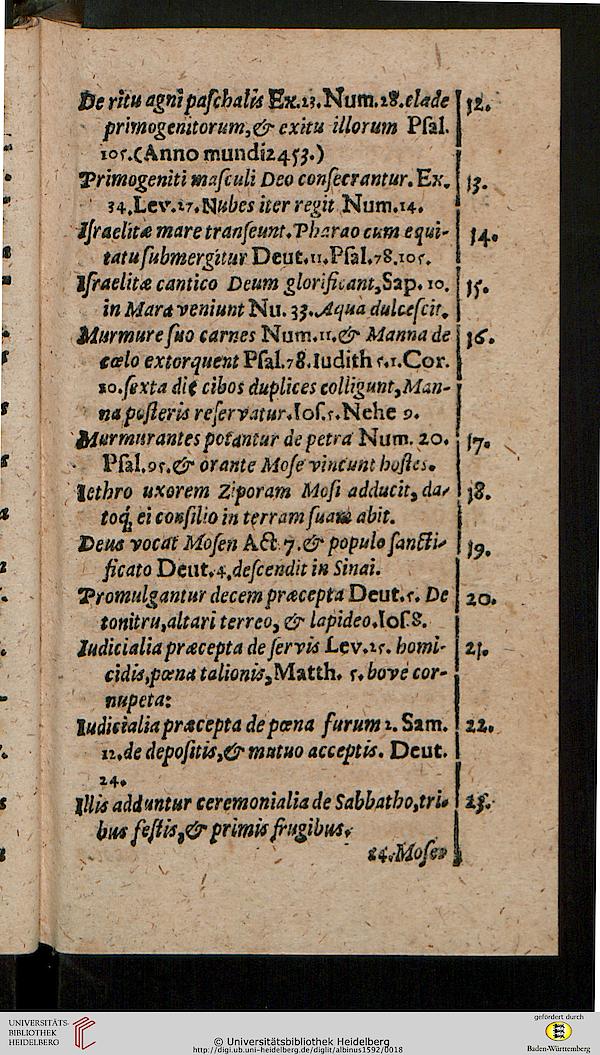 De ritu agni paſchalis Ex.13.Num.28.clade 12.
primogenitorum,& exitu illorum Pſal.
105.(Anno mundi2453.)
Primogeniti maſculi Deo conſecrantur. Ex. 13.
34.Lev.27.Nubes iter regit Num.14.
Iſraelitæ mare tranſeunt.Pharao cum equi- 14.
tatu ſubmergitur Deut.11.Pſal.78.105.
Iſraelitæ cantico Deum glorificant,Sap. 10. 15.
in Mara veniunt Nu. 33.Aqua dulceſcit.
Murmure ſuo carnes Num.11.& Manna de 16.
cœlo extorquent Pſal.78.Iudith 5.1.Cor.
10.ſexta die cibos duplices colligunt,Man-
na poſteris reſervatur.Ioſ.5.Nehe 9.
Murmurantes potantur de petra Num. 20. 17.
Pſal.95.& orante Moſe vincunt hoſtes.
Iethro uxorem Ziporam Moſi adducit, da- 18.
toq́; ei conſilio in terram ſuam abit.
Deus vocat Moſen Act 7.& populo ſancti- 19.
ficato Deut.4.deſcendit in Sinai.
Promulgantur decem præcepta Deut.5. De 20.
tonitru,altari terreo, & lapideo.Ioſ.8.
Iudicialia præcepta de ſervis Lev.25. homi- 21.
cidis,pœna talionis,Matth. 5.bove cor-
nupeta:
Iudicialia præcepta de pœna furum 2. Sam. 22.
12.de depoſitis,& mutuo acceptis. Deut.
24.
Illis adduntur ceremonialia de Sabbatho,tri- 23.
bus feſtis,& primis frugibus.
24.Moſes
UNIVERSITÄTS-
BIBLIOTHEK
HEIDELBERG
© Universitätsbibliothek Heidelberg
http://digi.ub.uni-heidelberg.de/diglit/albinus1592/0018
gefördert durch
Baden-Württemberg